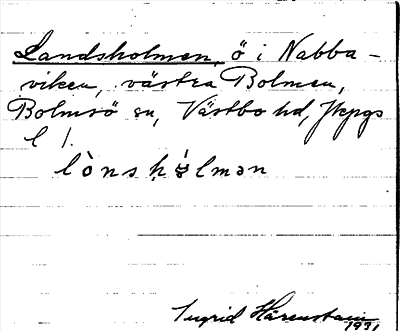 Landsholmen, ö i Nabba-
viken, västra Bolmen,
Bolmsö sn, Västbo hd, Jkpgs
l /.
lònshólmən
Ingrid Härenstam
1931